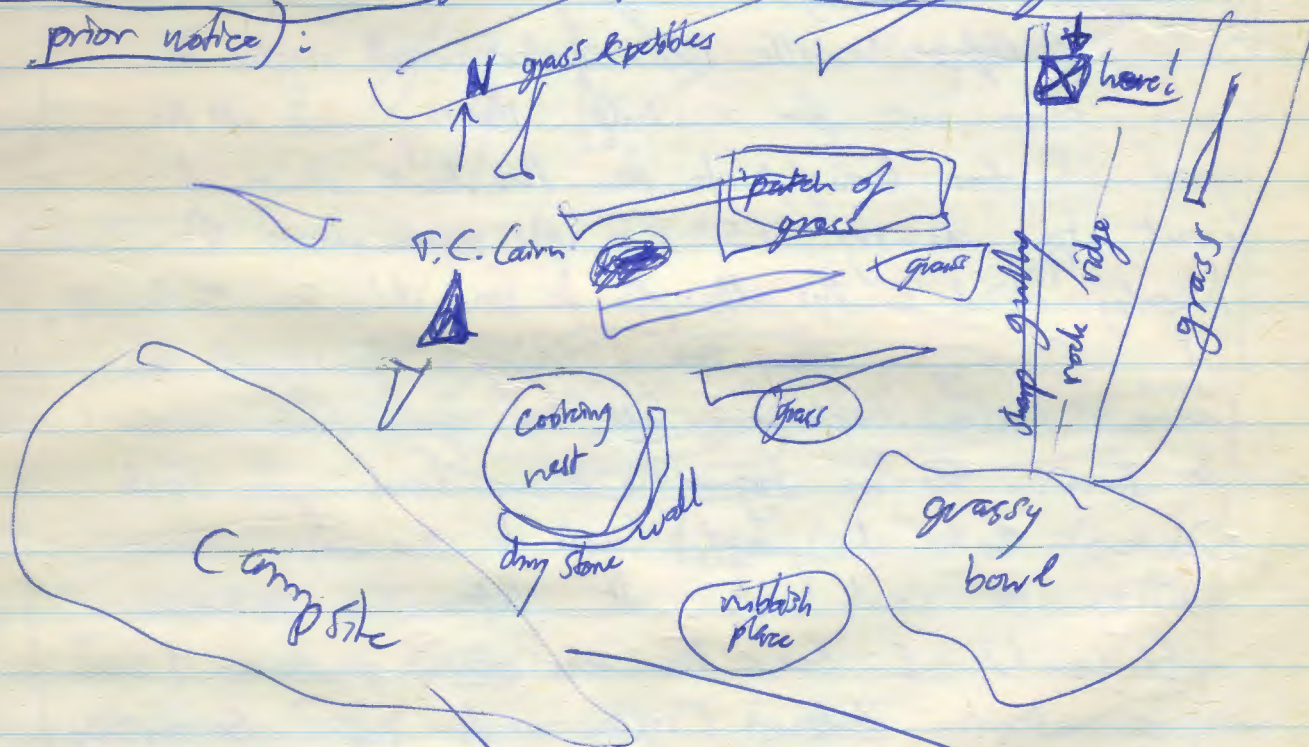 prior notice):
N
grass & pebbles
here!
patch of
grass
T.C. Cairn
grass
sharp gully
rock ridge
grass
cooking
nest
grass
wall
dry stone
grassy
bowl
Camp
Site
rubbish
place